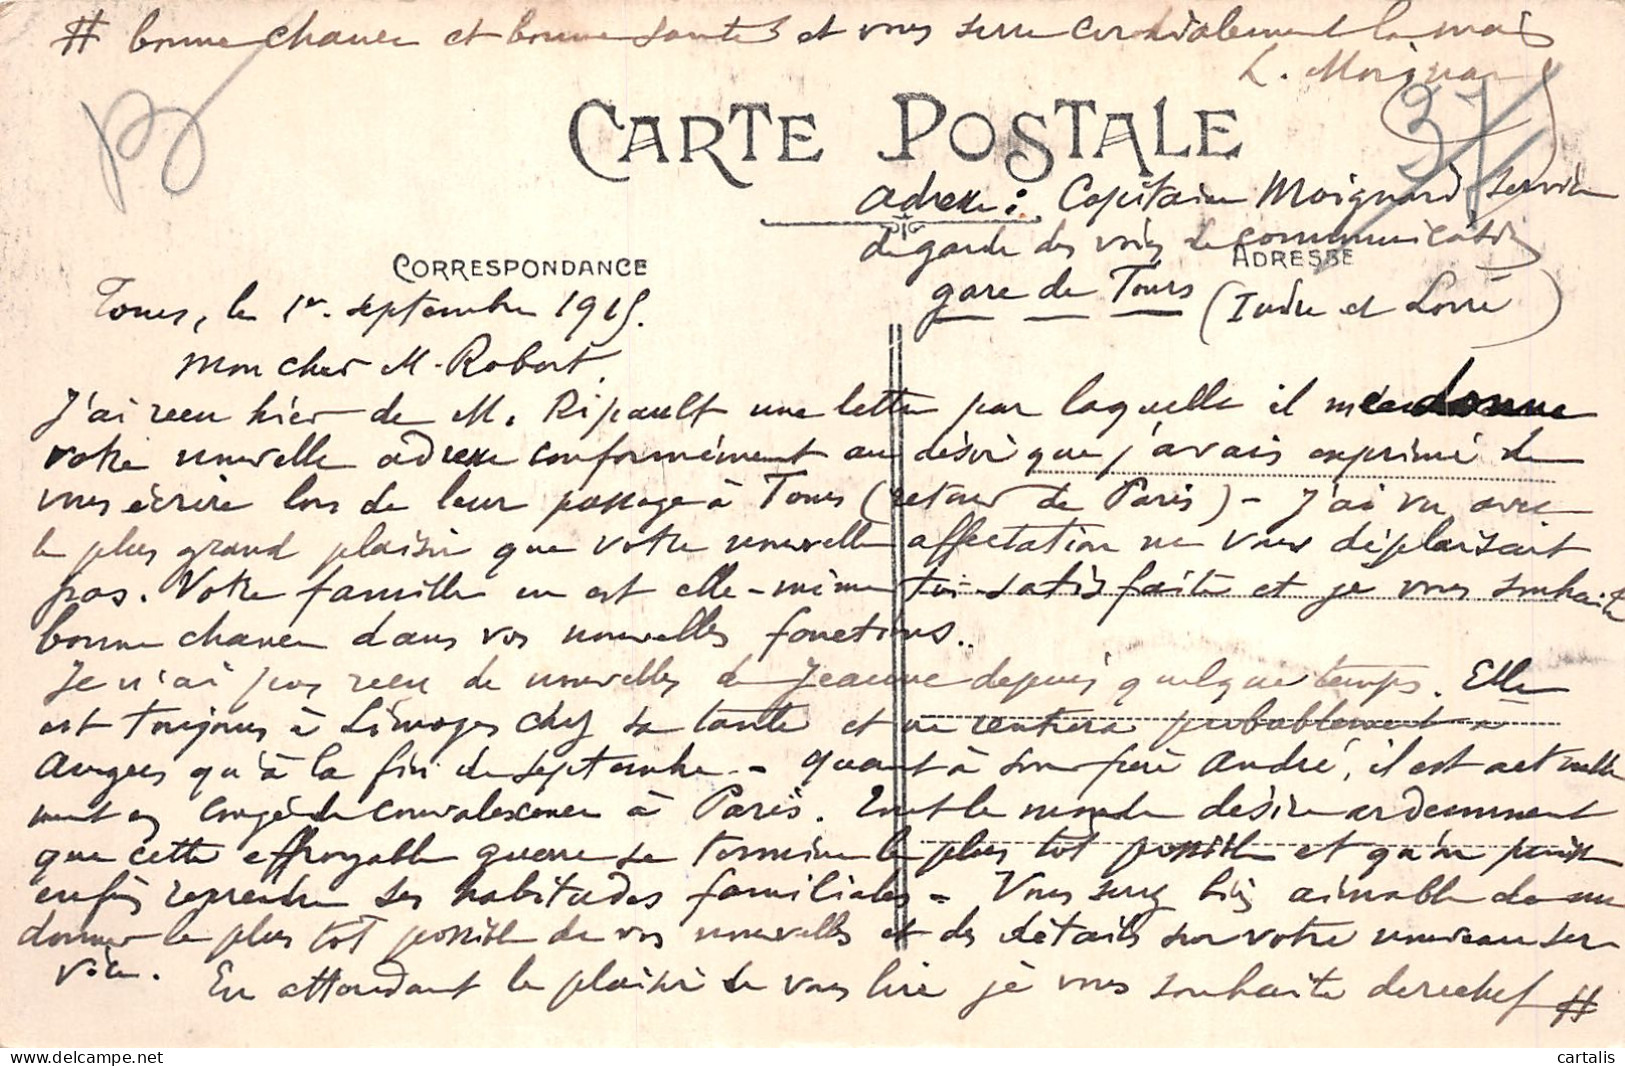 # bonne chance et bonne santé et vous serre cordialement la main
L. Moignard
37
CARTE POSTALE
adresse : Capitaine Moignard service
de garde des voies de communication
ADRESSE
gare de Tours (Indre et Loire)
CORRESPONDANCE
Tours, le 1er septembre 1915.
Mon cher M. Robert.
J'ai reçu hier de M. Ripault une lettre par laquelle il me donne
votre nouvelle adresse conformément au désir que j'avais exprimé de
vous écrire lors de leur passage à Tours (retour de Paris) - J'ai vu avec
le plus grand plaisir que votre nouvelle affectation ne vous déplaisait
pas. Votre famille en est elle-même très satisfaite et je vous souhaite
bonne chance dans vos nouvelles fonctions..
Je n'ai pas reçu de nouvelles de Jeanne depuis quelque temps. Elle
est toujours à Limoges chez sa tante et ne rentrera probablement à
Angers qu'à la fin de septembre - Quant à son frère André, il est actuelle
ment en congé de convalescence à Paris. Tout le monde désire ardemment
que cette effroyable guerre se termine le plus tôt possible et qu'on puisse
enfin reprendre ses habitudes familiales - Vous serez bien aimable de me
donner le plus tôt possible de vos nouvelles et des détails sur votre nouveau ser
vice. En attendant le plaisir de vous lire je vous souhaite derechef #
cartalis